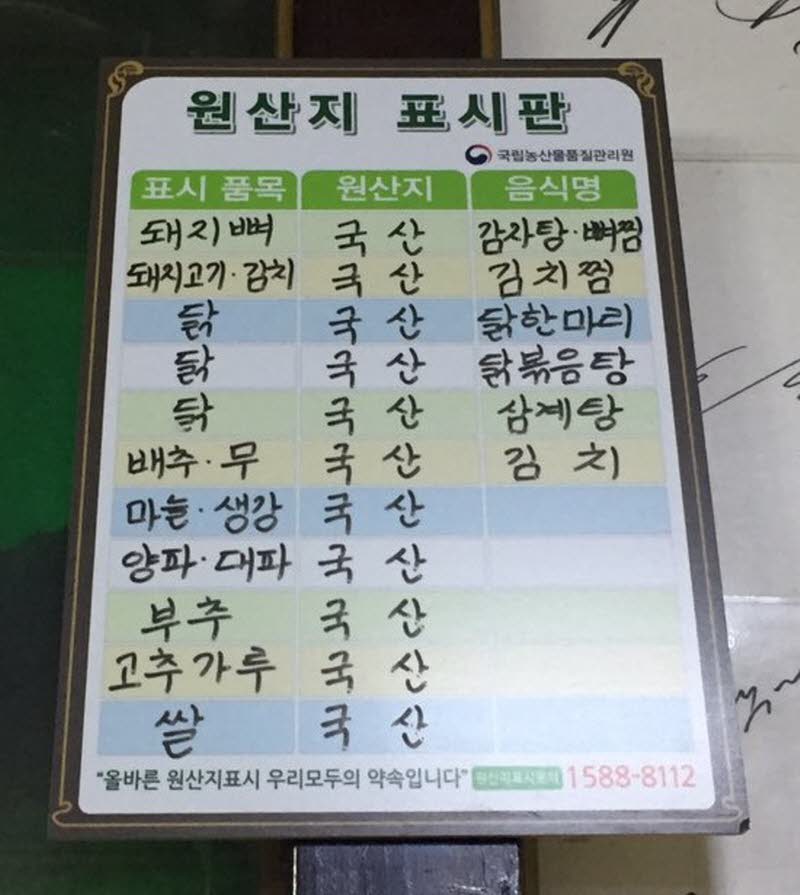 원산지 표시판
국립농산물품질관리원
표시 품목 원산지 음식명
돼지뼈 국산 감자탕·뼈찜
돼지고기·김치 국산 김치찜
닭 국산 닭한마리
닭 국산 닭볶음탕
닭 국산 삼계탕
배추·무 국산 김치
마늘·생강 국산
양파·대파 국산
부추 국산
고추가루 국산
쌀 국산
"올바른 원산지표시 우리모두의 약속입니다" 원산지표시문의 1588-8112